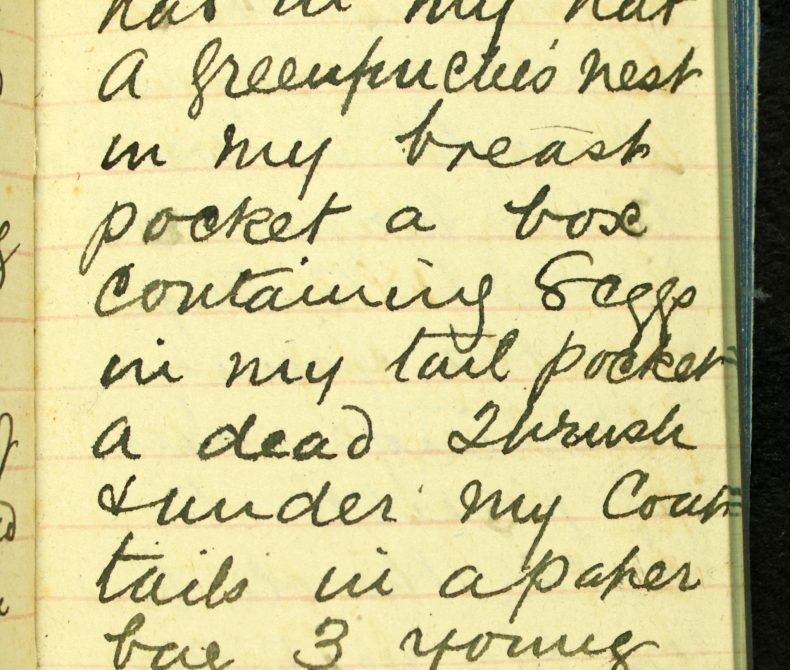 had in my hat
A Greenfinches nest
in my breast
pocket a box
containing 8 eggs
in my tail pocket
a dead Thrush
& under my Coat
tails in a paper
bag 3 young